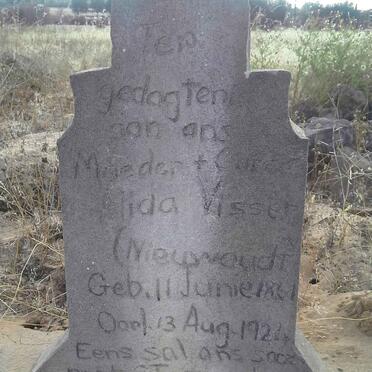 Ter
gedagtenis
aan ons
Moeder +
Alida Visser
(Nieuwoudt
Geb. 11 Junie
Oorl. 13 Aug. 192
Eens sal ons soos